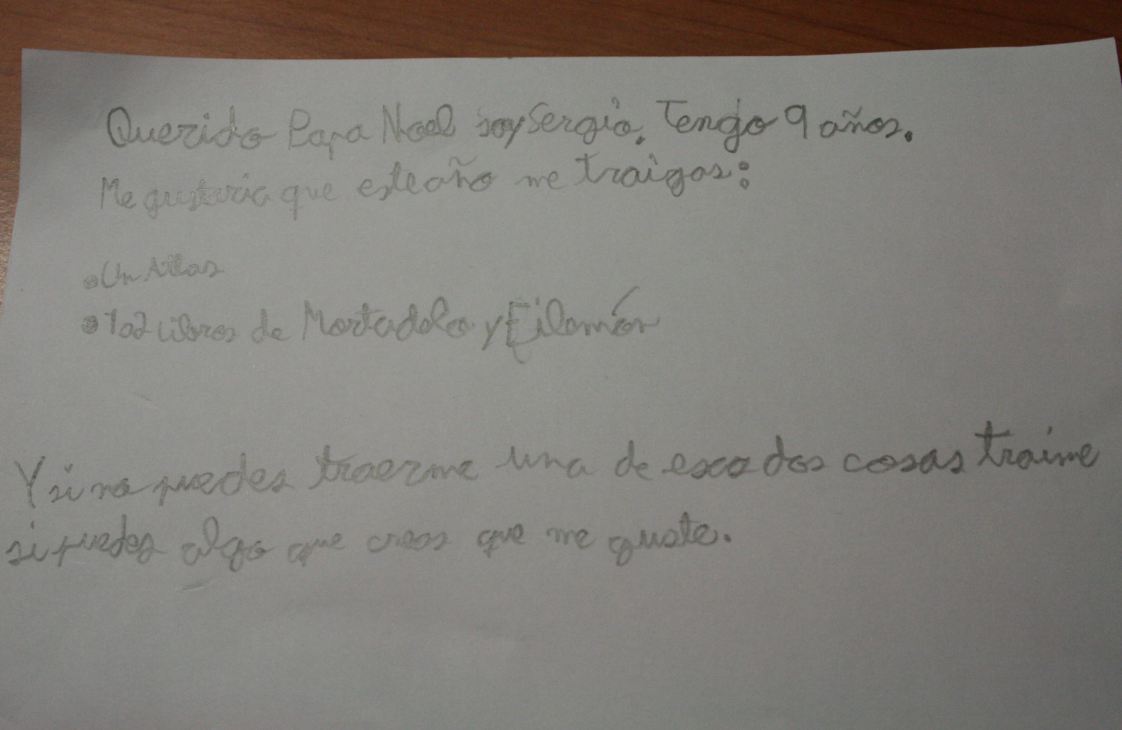 Querido Papa Noel soy Sergio. Tengo 9 años.
Me gustaria que este año me traigas:
• Un Atlas
• 1 o 2 libros de Mortadelo y Filemón
Y si no puedes traerme una de esas dos cosas traime
si puedes algo que creas que me guste.